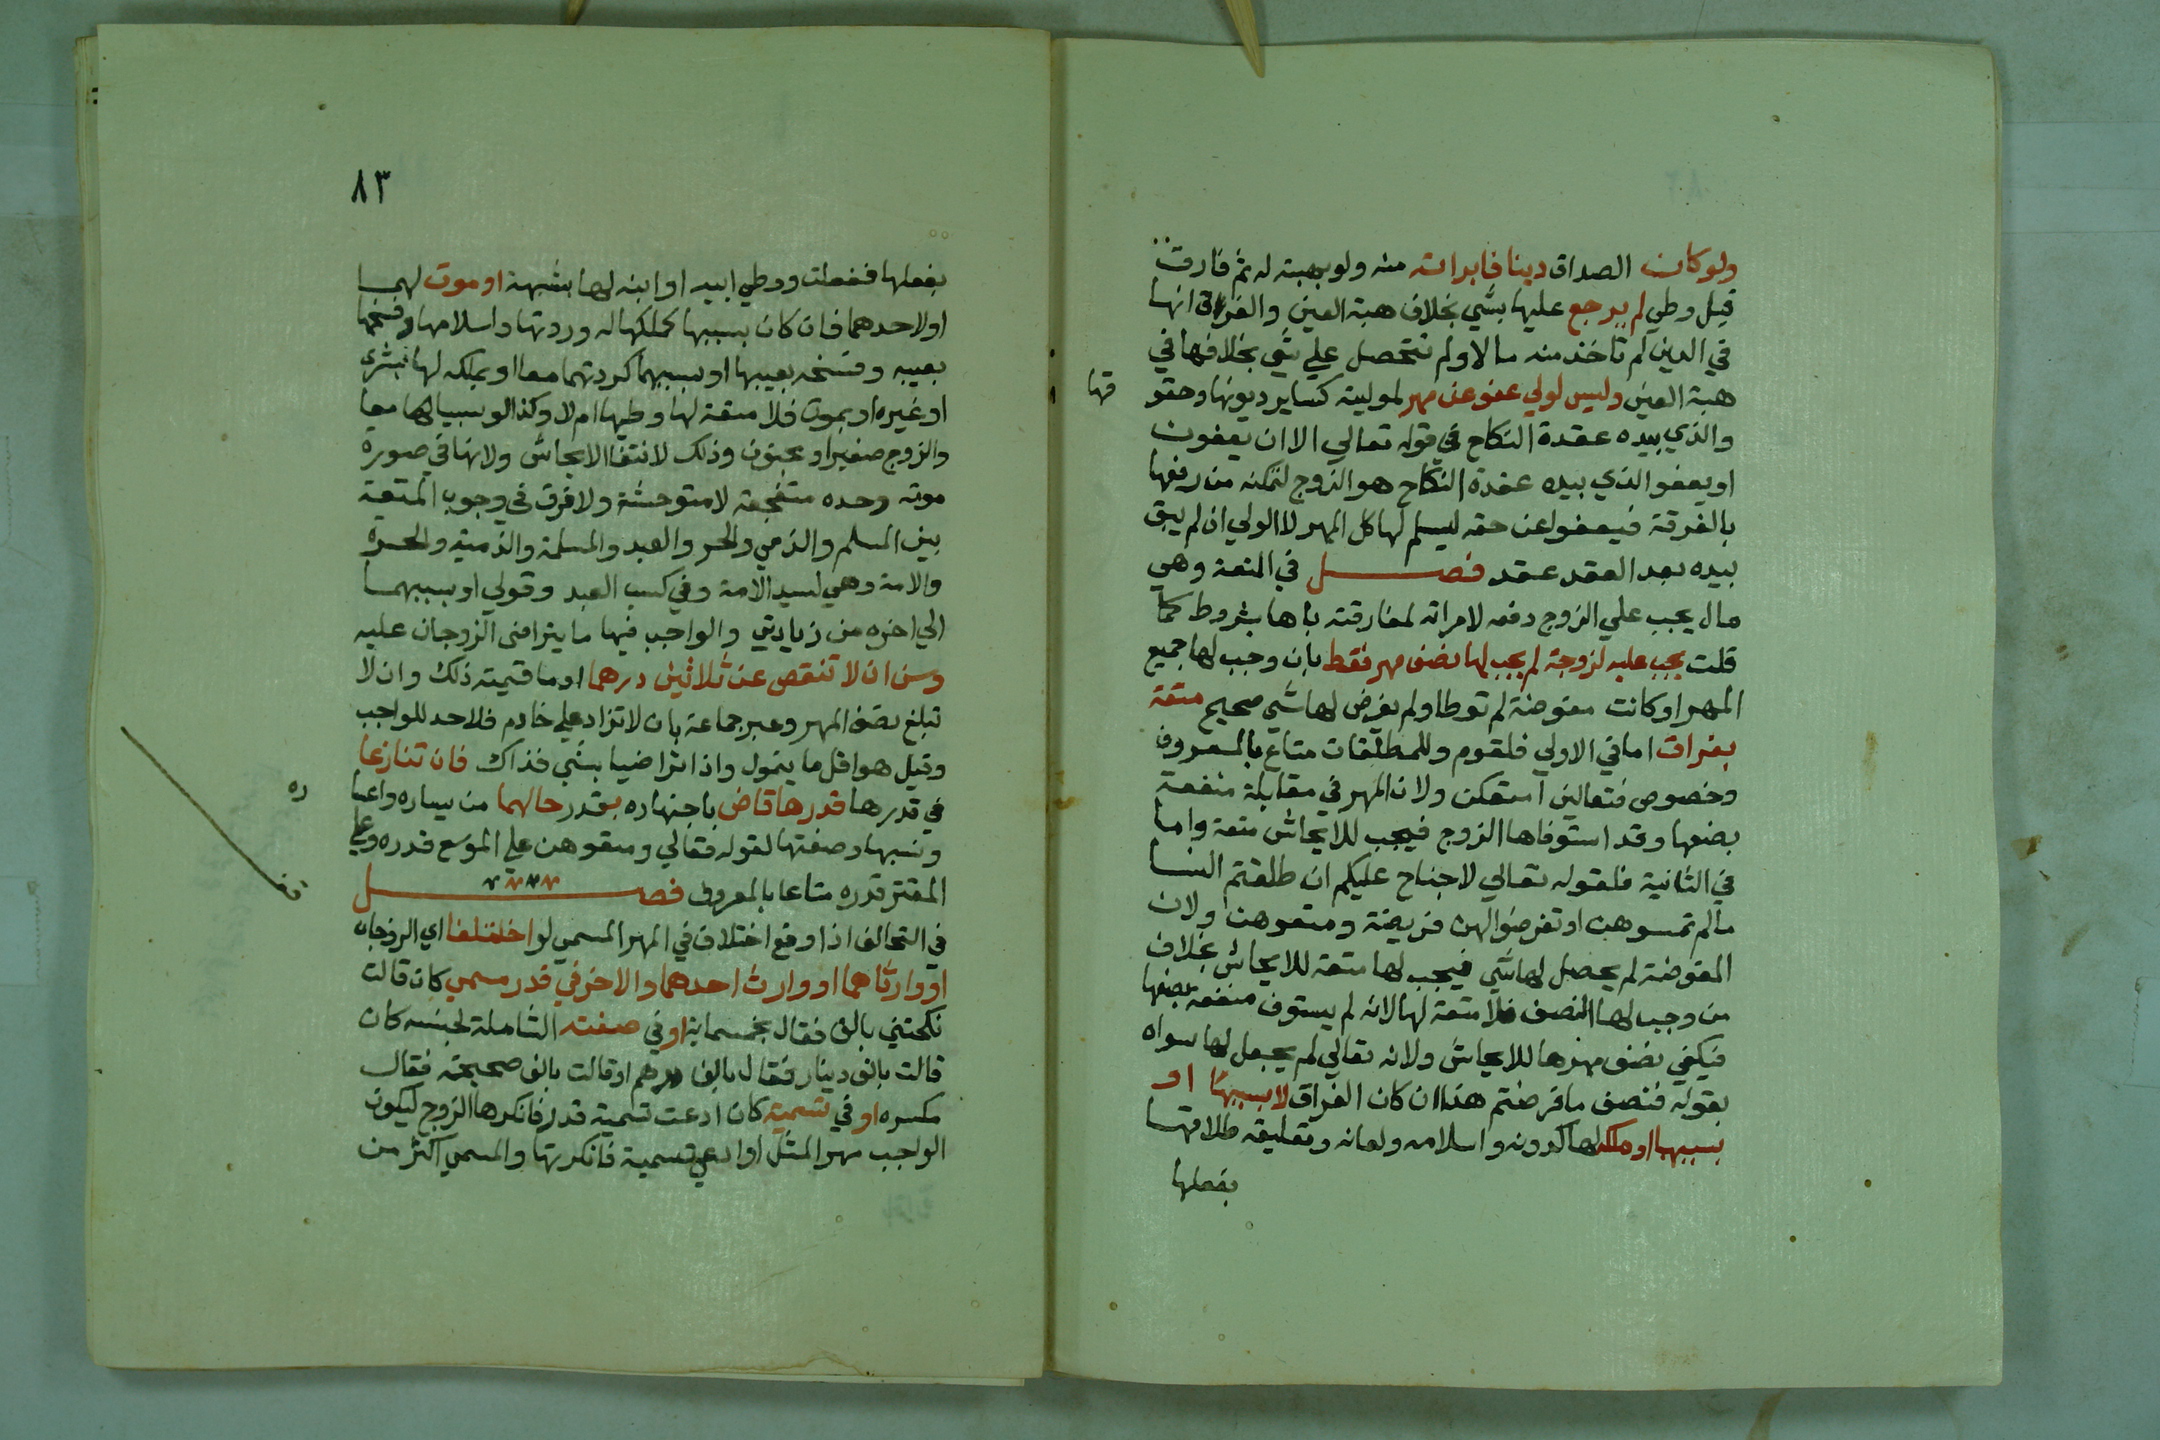 ولو كان الصداق دينا فابراته منه ولو بهبته له ثم فارق
قبل وطي لم يرجع عليها بشي بخلاف هبة العين والفرق انها
في الدين لم تاخذ منه مالا ولم تتحصل علي شي بخلافها في
هبة العين وليس لولي عفو عن مهر لموليته كساير ديونها وحقو
قها
والذي بيده عقدة النكاح في قوله تعالي الا ان يعفون
او يعفو الذي بيده عقدة النكاح هو الزوج لتمكنه من رفعها
بالفرقة فيعفوا عن حقه ليسلم لها كل المهر لا الولي ان لم يبق
بيده بعد العقد عقد فصل في المتعة وهي
مال يجب علي الزوج دفعه لامراته لمفارقته باها بشروط كما
قلت يجب عليه لزوجة لم يجب لها نصف مهر فقط بان وجب لها جميع
المهر او كانت مفوضة لم توطا ولم يفرض لها شي صحيح متعة
بفراق اما في الاولي فلقوم وللمطلقات متاع بالمعروف
وخصوص فتعالين امتعكن ولان المهر في مقابلة منفعة
بضعها وقد استوفاها الزوج فيجب للايحاش متعة واما
في الثانية فلقوله تعالي لاجناح عليكم ان طلقتم النسا
مالم تمسوهن او تفرضوا لهن فريضة ومتعوهن ولان
المفوضة لم يحصل لها شي فيجب لها متعة للايحاش بخلاف
من وجب لها النصف فلا متعة لها لانه لم يستوف منفعة بضعها
فيكفي نصف مهرها للايحاش ولانه تعالي لم يجعل لها سواه
بقوله فنصف ما فرضتم هذا ان كان الفراق لا بسببها او
بسببهما او ملكه لها كردته واسلامه ولعانه وتعليقه طلاقها
بفعلها
٨٣
بفعلها ففعلت ووطي ابيه او ابنه لها بشبهة او موت لهما
او لاحدهما فان كان بسببها كملكها له وردتها واسلامها وفسخها
بعيبه وفسخه بعيبها او بسببهما كردتهما معا او بملكه لها بشري
او غيره او بموت فلا متعة لها وطيها ام لا وكذا لو سبيا لها معا
والزوج صغير او مجنون وذلك لانتفا الايحاش ولانها في صورة
موته وحده متفجعة لا متوحشة ولا فرق في وجوب المتعة
بين المسلم والذمي والحر والعبد والمسلمة والذمية والحرة
والامة وهي لسيد الامة وفي كسب العبد وقولي او بسببهما
الي اخره من زيادتي والواجب فيها ما يتراضي الزوجان عليه
وسن ان لا تنقص عن ثلاثين درهما او ما قيمته ذلك وان لا
تبلغ نصف المهر وعبر جماعة بان لا تزاد علي خادم فلا حد للواجب
وقيل هو اقل ما يتمول واذا تراضيا بشي فذاك فان تنازعا
في قدرها قدرها قاض باجتهاده بقدر حالهما من يساره واعسا
ره
ونسبها وصفتها لقوله فقالي ومتعوهن علي الموسع قدره وعلي
المقتر قدره متاعا بالمعروف فصل
في التحالف اذا وقع اختلاف في المهر المسمي لو اختلفا اي الزوجان
او وارثاهما او وارث احدهما والاخر في قدر مسمي كان قالت
نكحتني بالف فقال بخمسماية او في صفته الشاملة لجنسه كان
قالت بالف دينار فقال بالف درهم او قالت بالف صحيحة فقال
مكسره او في تسمية كان ادعت تسمية قدر فانكرها الزوج ليكون
الواجب مهر المثل او ادعي تسمية فانكرتها والمسمي اكثر من